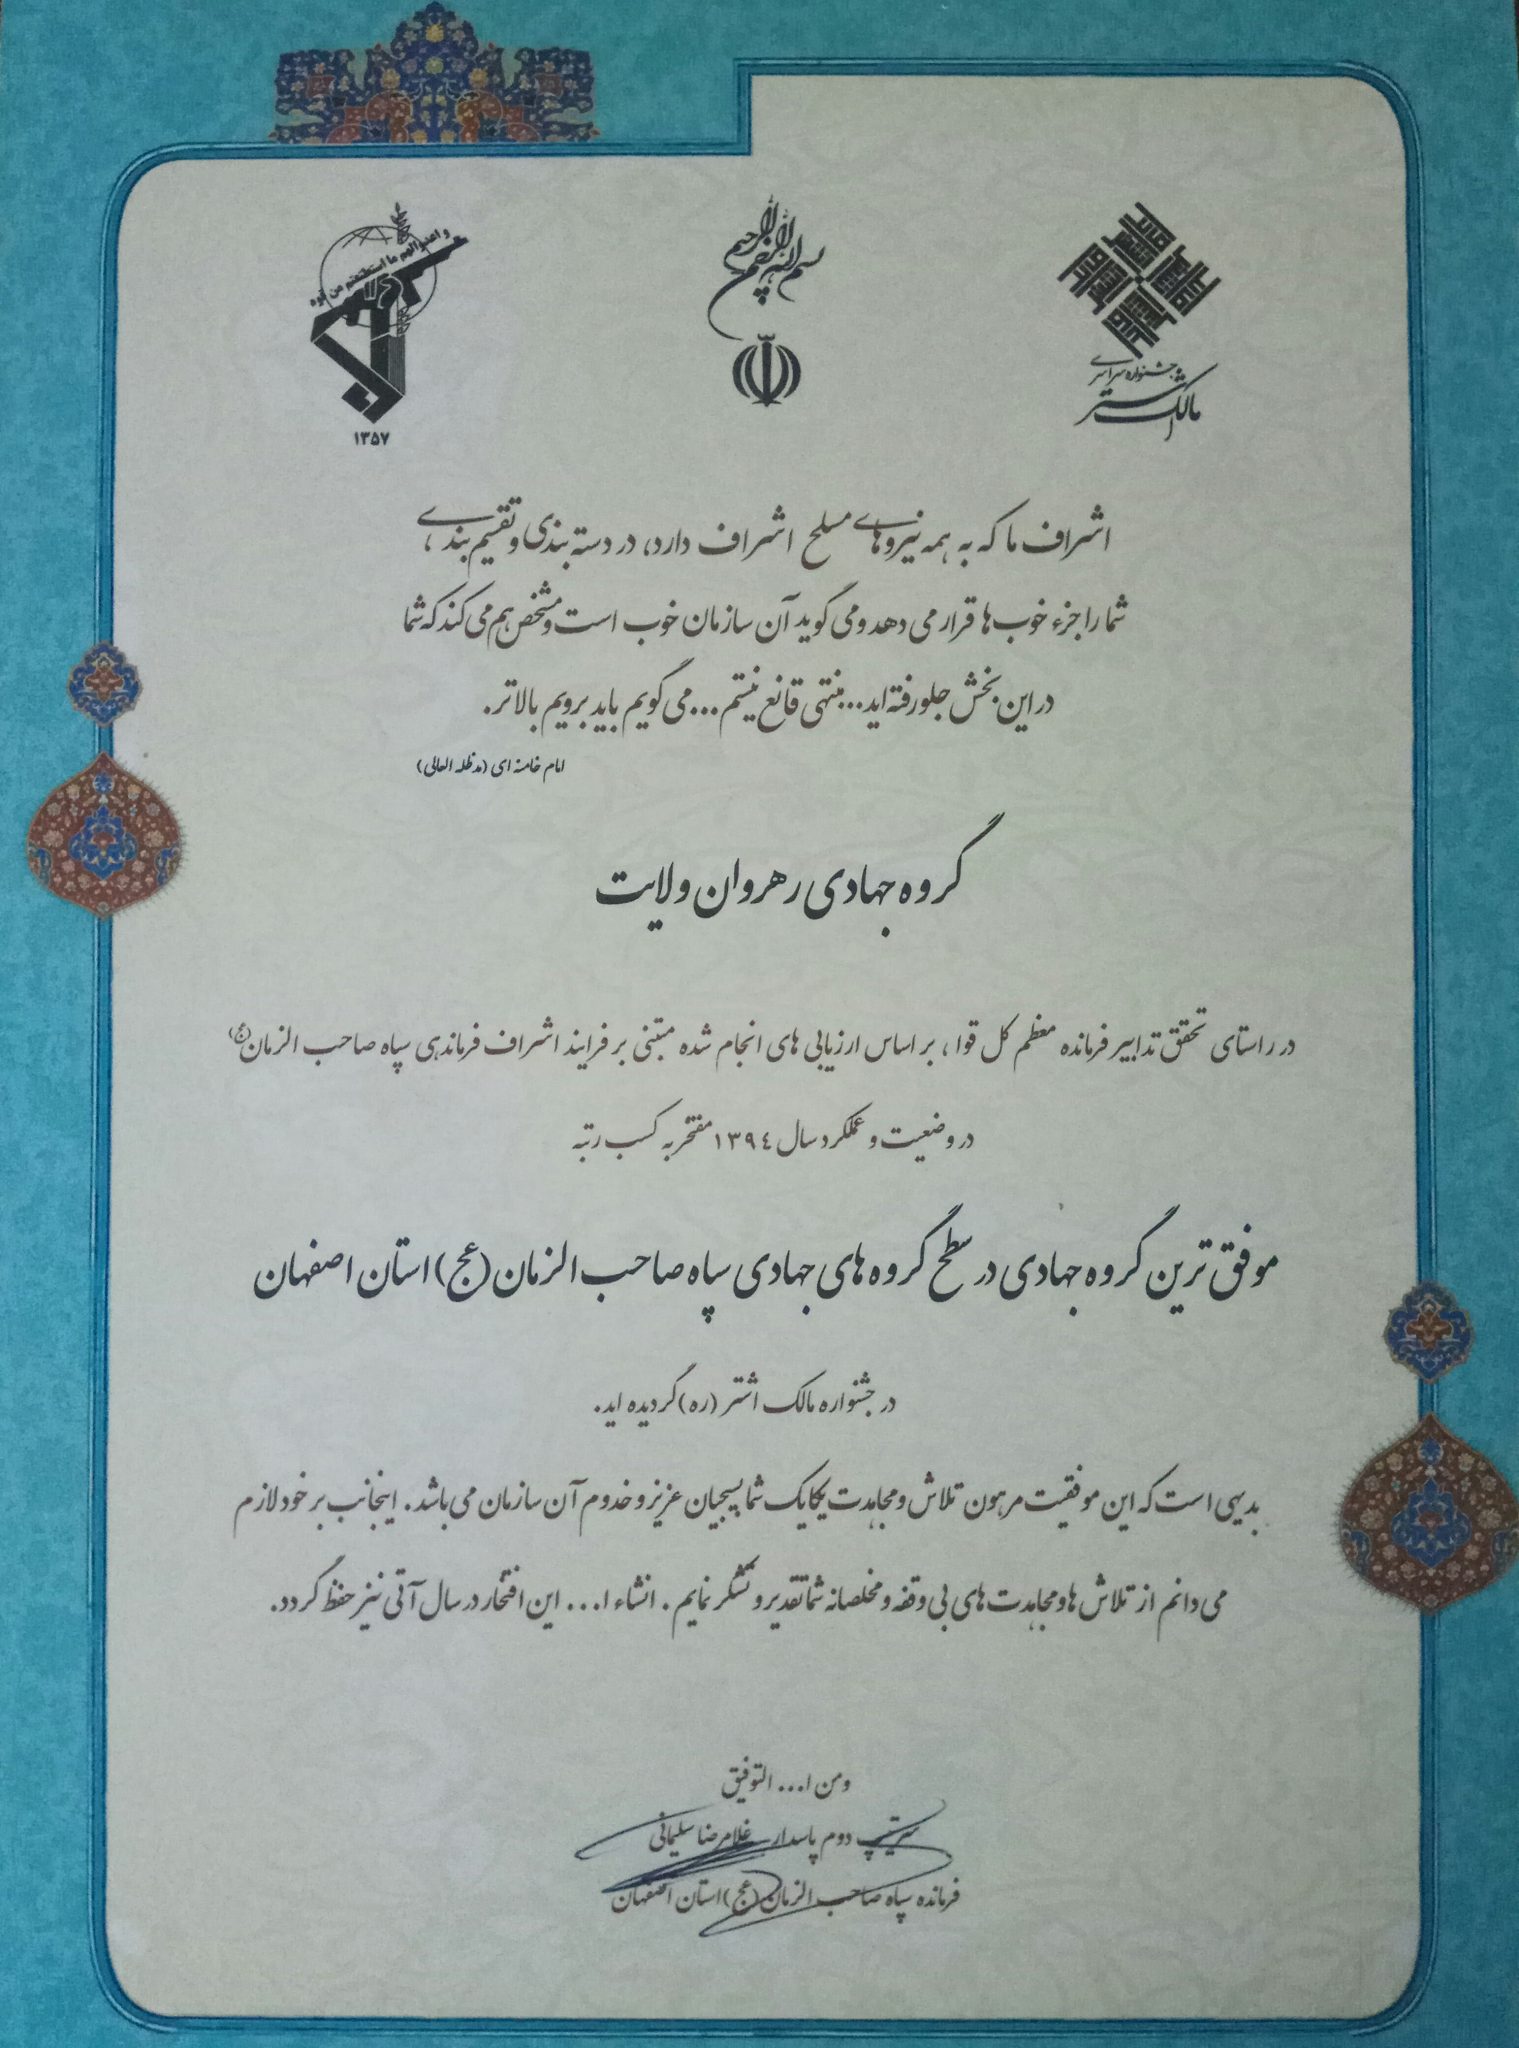 بسم الله الرحمن الرحیم
جشنواره سراسری
مالک اشتر
و اعدوا لهم ما استطعتم من قوة
۱۳۵۷
اشراف ما که به همه نیروهای مسلح اشراف دارد، در دسته بندی و تقسیم بندی،
شما را جزء خوب ها قرار می دهد و می گوید آن سازمان خوب است و مشخص هم می کند که شما
در این بخش جلو رفته اید... منتهی قانع نیستم... می گویم باید برویم بالاتر.
امام خامنه ای (مدظله العالی)
گروه جهادی رهروان ولایت
در راستای تحقق تدابیر فرمانده معظم کل قوا، بر اساس ارزیابی های انجام شده مبتنی بر فرایند اشراف فرماندهی سپاه صاحب الزمان (عج)
در وضعیت و عملکرد سال ۱۳۹٤ مفتخر به کسب رتبه
موفق ترین گروه جهادی در سطح گروه های جهادی سپاه صاحب الزمان (عج) استان اصفهان
در جشنواره مالک اشتر (ره) گردیده اید.
بدیهی است که این موفقیت مرهون تلاش و مجاهدت یکایک شما بسیجیان عزیز و خدوم آن سازمان می باشد. اینجانب بر خود لازم
می دانم از تلاش ها و مجاهدت های بی وقفه و مخلصانه شما تقدیر و تشکر نمایم. انشاء ا... این افتخار در سال آتی نیز حفظ گردد.
ومن ا... التوفیق
سرتیپ دوم پاسدار غلامرضا سلیمانی
فرمانده سپاه صاحب الزمان (عج) استان اصفهان